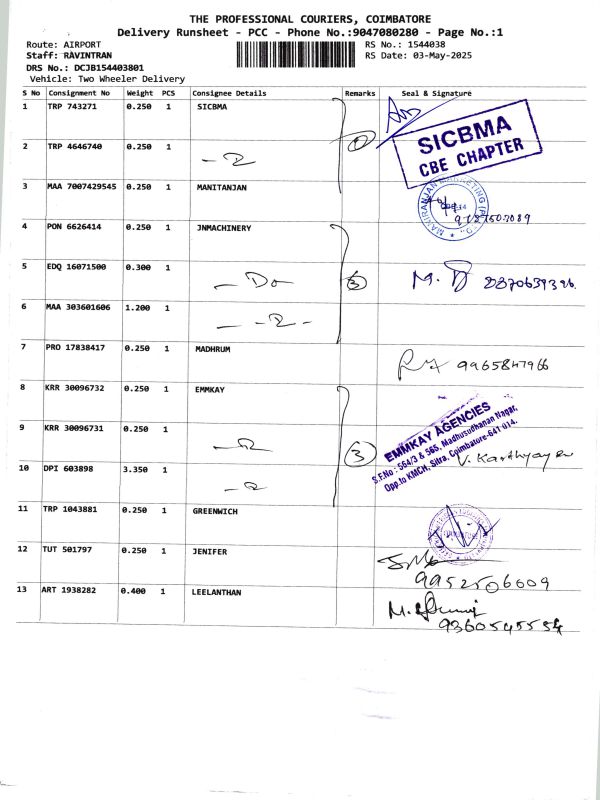 THE PROFESSIONAL COURIERS, COIMBATORE
Delivery Runsheet - PCC - Phone No.:9047080280 - Page No.:1
Route: AIRPORT RS No.: 1544038
Staff: RAVINTRAN RS Date: 03-May-2025
DRS No.: DCJB154403801
Vehicle: Two Wheeler Delivery
S No Consignment No Weight PCS Consignee Details Remarks Seal & Signature
1 TRP 743271 0.250 1 SICBMA
SICBMA
CBE CHAPTER
2 TRP 4646740 0.250 1
3 MAA 7007429545 0.250 1 MANITANJAN
4 PON 6626414 0.250 1 JNMACHINERY
5 EDQ 16071500 0.300 1 - Do - 3
6 MAA 303601606 1.200 1
7 PRO 17838417 0.250 1 MADHRUM 9965847966
8 KRR 30096732 0.250 1 EMMKAY
EMMKAY AGENCIES
S.F.No : 564/3 & 565, Madhusudhanan Nagar,
Opp.to KMCH, Sitra, Coimbature-641 014.
9 KRR 30096731 0.250 1 3
10 DPI 603898 3.350 1
11 TRP 1043881 0.250 1 GREENWICH
12 TUT 501797 0.250 1 JENIFER
9952506609
13 ART 1938282 0.400 1 LEELANTHAN
9360545554